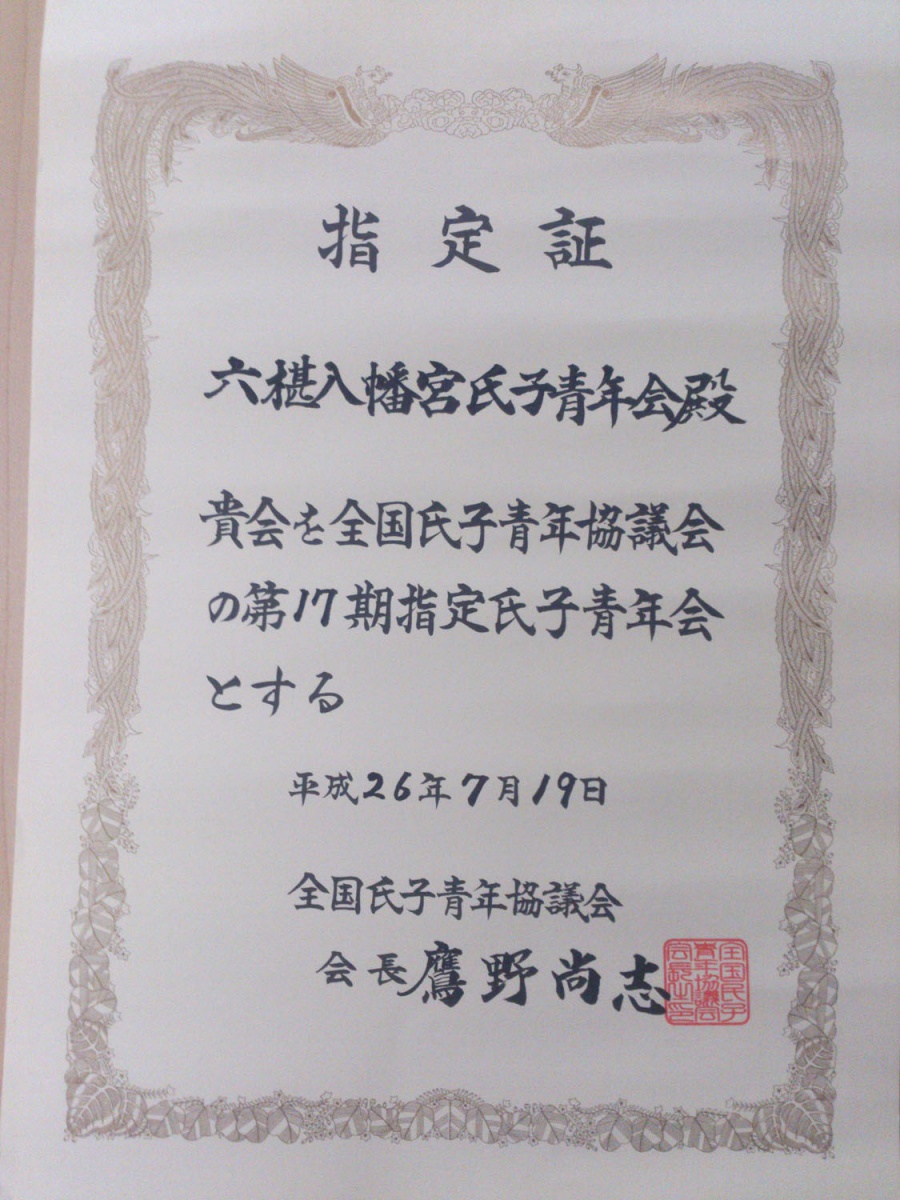 指定証
六椹八幡宮氏子青年会殿
貴会を全国氏子青年協議会
の第17期指定氏子青年会
とする
平成26年7月19日
全国氏子青年協議会
会長鷹野尚志
全国氏子
青年協議会
会長之印